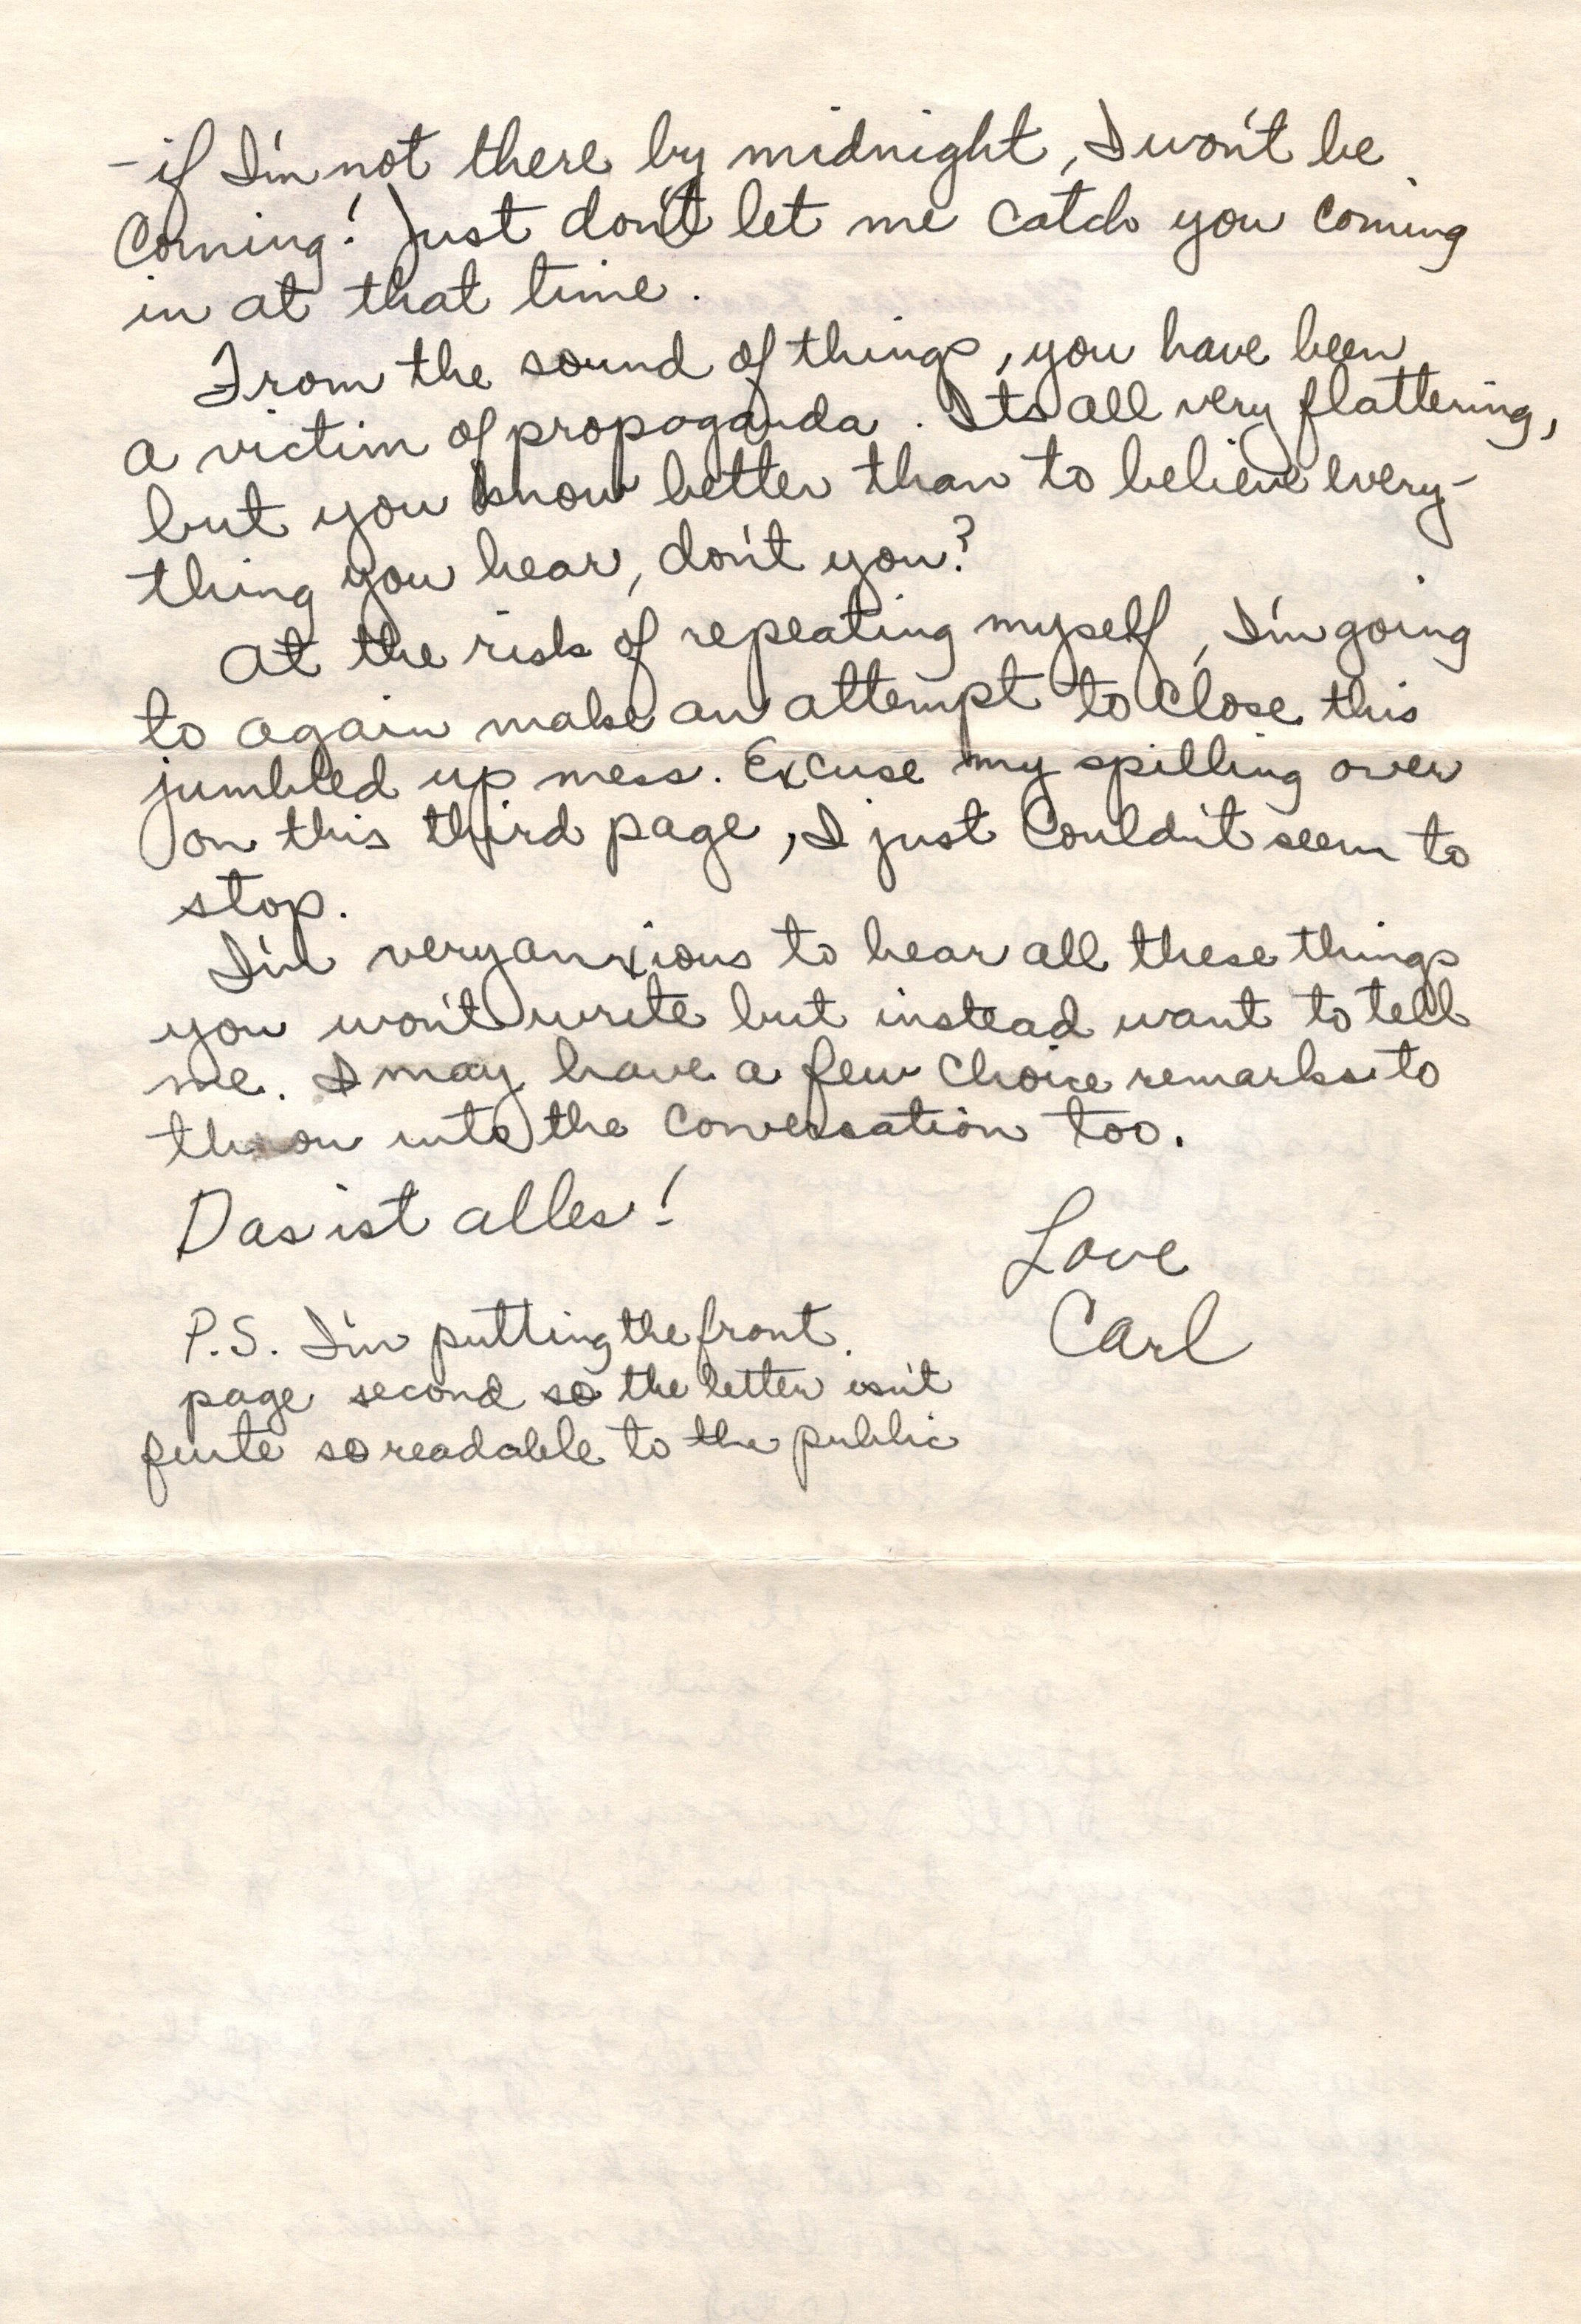 - if I'm not there by midnight, I won't be
coming! Just don't let me catch you coming
in at that time.
From the sound of things, you have been
a victim of propaganda. Its all very flattering,
but you know better than to believe every-
thing you hear, don't you?
At the risk of repeating myself, I'm going
to again make an attempt to close this
jumbled up mess. Excuse my spilling over
on this third page, I just couldn't seem to
stop.
I'm very anxious to hear all these things
you won't write but instead want to tell
me. I may have a few choice remarks to
throw into the conversation too.
Das ist alles!
Love
Carl
P.S. I'm putting the front
page second so the letter isn't
quite so readable to the public